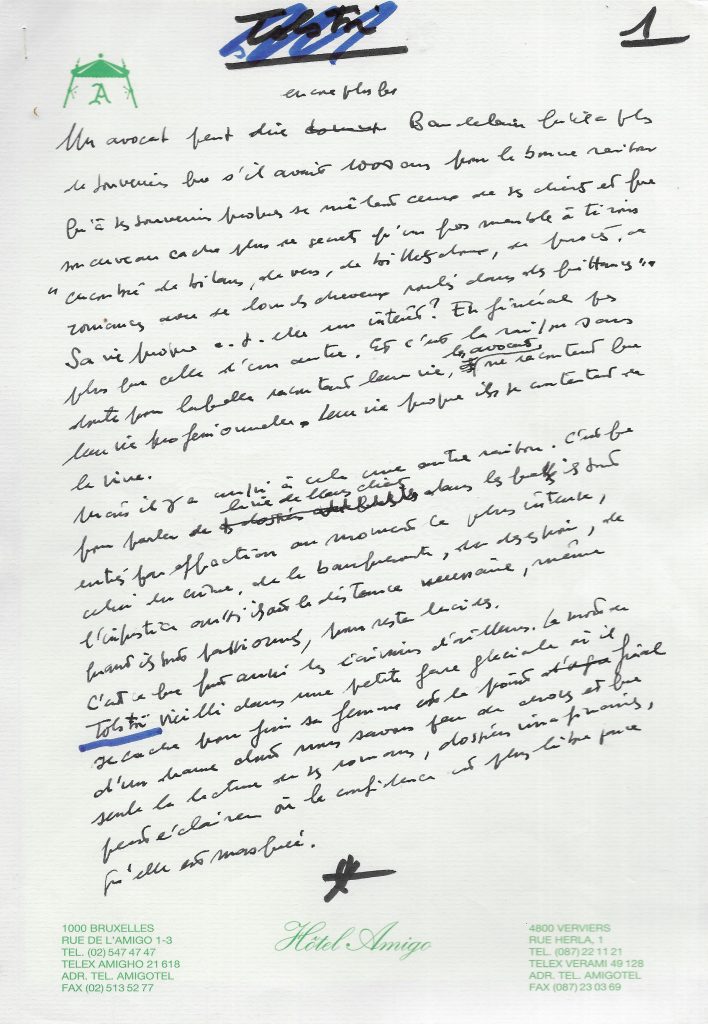 Tolstoï
1
A
encore plus bas
Un avocat peut dire comme Baudelaire qu'il a plus
de souvenirs que s'il avait 1000 ans pour la bonne raison
qu'à ses souvenirs propres se mêlent ceux de ses clients et que
son cerveau cache plus de secrets qu'un gros meuble à tiroirs
"encombré de bilans, de vers, de billets doux, de procès, de
romances avec de lourds cheveux roulés dans des quittances".
Sa vie propre a-t-elle un intérêt? En général pas
plus que celle d'un autre. Et c'est la raison sans
doute pour laquelle racontant leur vie, les avocats ne racontent que
leur vie professionnelle. Leur vie propre ils se contentent de
la vivre.
Mais il y a aussi à cela une autre raison. C'est que
pour parler de la vie de leurs clients dans les quels ils sont
entrés par effraction au moment le plus intense,
celui du crime, de la banqueroute, du désespoir, de
l'injustice aussi ils ont la distance nécessaire, même
quand ils sont passionnés, pour rester lucides.
C'est ce que font aussi les écrivains d'ailleurs. La mort de
Tolstoï vieilli dans une petite gare glaciale où il
se cache pour fuir sa femme est le point final
d'un drame dont nous savons peu de choses et que
seule la lecture de ses romans, dossiers imaginaires,
peut éclairer où la confidence est plus libre parce
qu'elle est masquée.
1000 BRUXELLES
RUE DE L'AMIGO 1-3
TEL. (02) 547 47 47
TELEX AMIGHO 21 618
ADR. TEL. AMIGOTEL
FAX (02) 513 52 77
Hôtel Amigo
4800 VERVIERS
RUE HERLA, 1
TEL. (087) 22 11 21
TELEX VERAMI 49 128
ADR. TEL. AMIGOTEL
FAX (087) 23 03 69